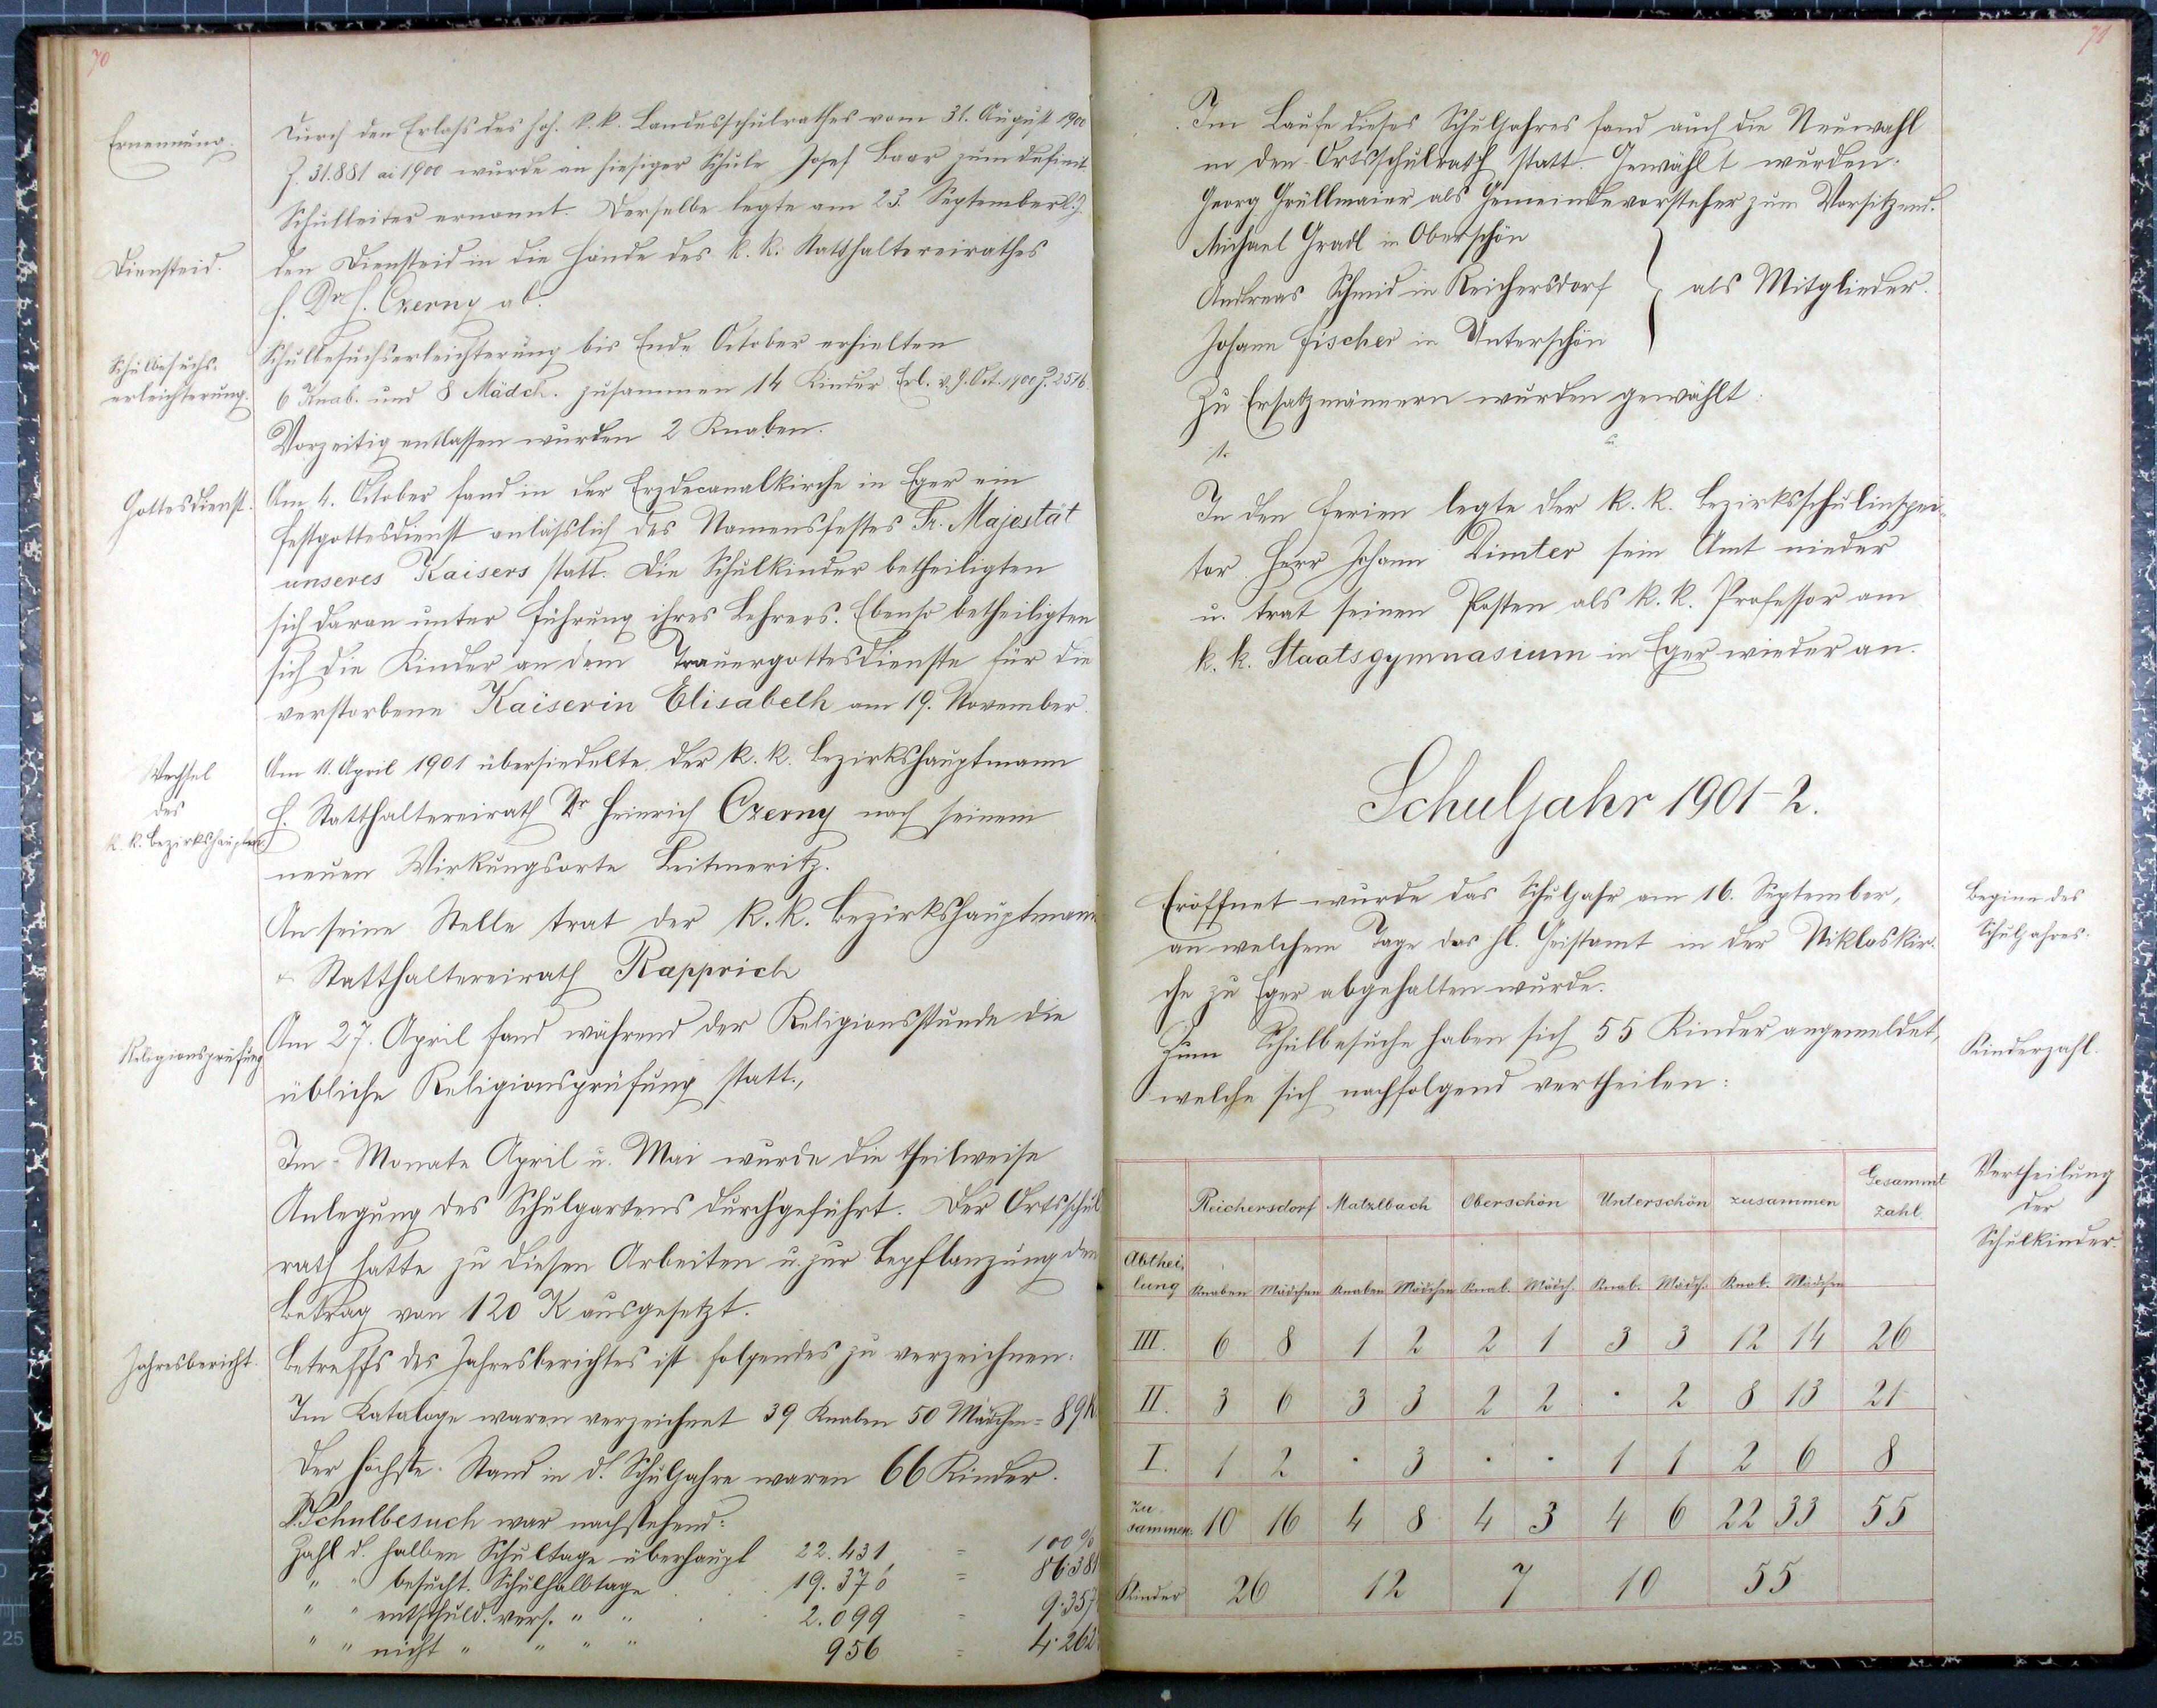 70
Ernennung.
Durch den Erlaß des hoh. k. k. Landesschulrathes vom 31. August 1900
Z. 31.881 ai 1900 wurde an hiesiger Schule Josef Baar zum definit.
Schulleiter ernannt. Derselbe legte am 23. September l. J.
Diensteid.
den Diensteid in die Hände des k. k. Statthaltereirathes
H. Dr H. Czerny ab.
Schulbesuchs-
erleichterung.
Schulbesuchserleichterung bis Ende October erhielten
6 Knab. und 8 Mädch. zusammen 14 Kinder Erl. v. 9. Oct. 1900 Z. 2516
Vorzeitig entlassen wurden 2 Knaben.
Gottesdienst.
Am 4. October fand in der Erzdecanalkirche in Eger ein
Festgottesdienst anläßlich des Namensfestes Sr. Majestät
unseres Kaisers statt. Die Schulkinder betheiligten
sich daran unter Führung ihres Lehrers. Ebenso betheiligten
sich die Kinder an dem Trauergottesdienste für die
verstorbene Kaiserin Elisabeth am 19. November.
Wechsel
des
k. k. Bezirkshauptm.
Am 11. April 1901 übersiedelte der k. k. Bezirkshauptmann
H. Statthaltereirath Dr Heinrich Czerny nach seinem
neuen Wirkungsorte Leitmeritz.
An seine Stelle trat der k. k. Bezirkshauptmann
Statthaltereirath Rapprich
Religionsprüfung
Am 27. April fand während der Religionsstunde die
übliche Religionsprüfung statt.,
Im Monate April u. Mai wurde die theilweise
Anlegung des Schulgartens durchgeführt. Der Ortsschul
rath hatte zu diesen Arbeiten u. zur Bepflanzung den
Betrag von 120 K ausgesetzt.
Jahresbericht.
Betreffs des Jahresberichtes ist folgendes zu verzeichnen:
Im Kataloge waren verzeichnet 39 Knaben 50 Mädchen = 89 K
Der höchste Stand in d. Schuljahre waren 66 Kinder.
D. Schulbesuch war nachstehend:
Zahl d. halben Schultage überhaupt 22.431 = 100 %
" " besucht. Schulhalbtage . . 19.376 = 86·381
" " entschuld. vers. " " . . 2.099 = 9·357
" " nicht " " " " 956 = 4·262
71
Im Laufe dieses Schuljahres fand auch die Neuwahl
in den Ortsschulrath statt. Gewählt wurden:
Georg Grüllmaier als Gemeindevorsteher zum Vorsitzend.
Michael Gradl in Oberschön
Andreas Schmid in Reichersdorf } als Mitglieder.
Johann Fischer in Unterschön
Zu Ersatzmännern wurden gewählt:
1.
In den Ferien legte der k. k. Bezirksschulinspec-
tor Herr Johann Dimter sein Amt nieder
u. trat seinen Posten als k. k. Professor am
k. k. Staatsgymnasium in Eger wieder an.
Schuljahr 1901-2.
Beginn des
Schuljahres.
Eröffnet wurde das Schuljahr am 16. September,
an welchem Tage das hl. Geistamt in der Niklaskir-
che zu Eger abgehalten wurde.
Kinderzahl.
Zum Schulbesuche haben sich 55 Kinder angemeldet,
welche sich nachfolgend vertheilen:
Vertheilung
der
Schulkinder.
Reichersdorf Matzlbach Oberschön Unterschön zusammen Gesammt
zahl
Abthei-
lung Knaben Mädchen Knaben Mädchen Knab. Mädch. Knab. Mädch. Knab. Mädchen
III. 6 8 1 2 2 1 3 3 12 14 26
II. 3 6 3 3 2 2 · 2 8 13 21
I. 1 2 · 3 · · 1 1 2 6 8
zu-
sammen. 10 16 4 8 4 3 4 6 22 33 55
Kinder 26 12 7 10 55